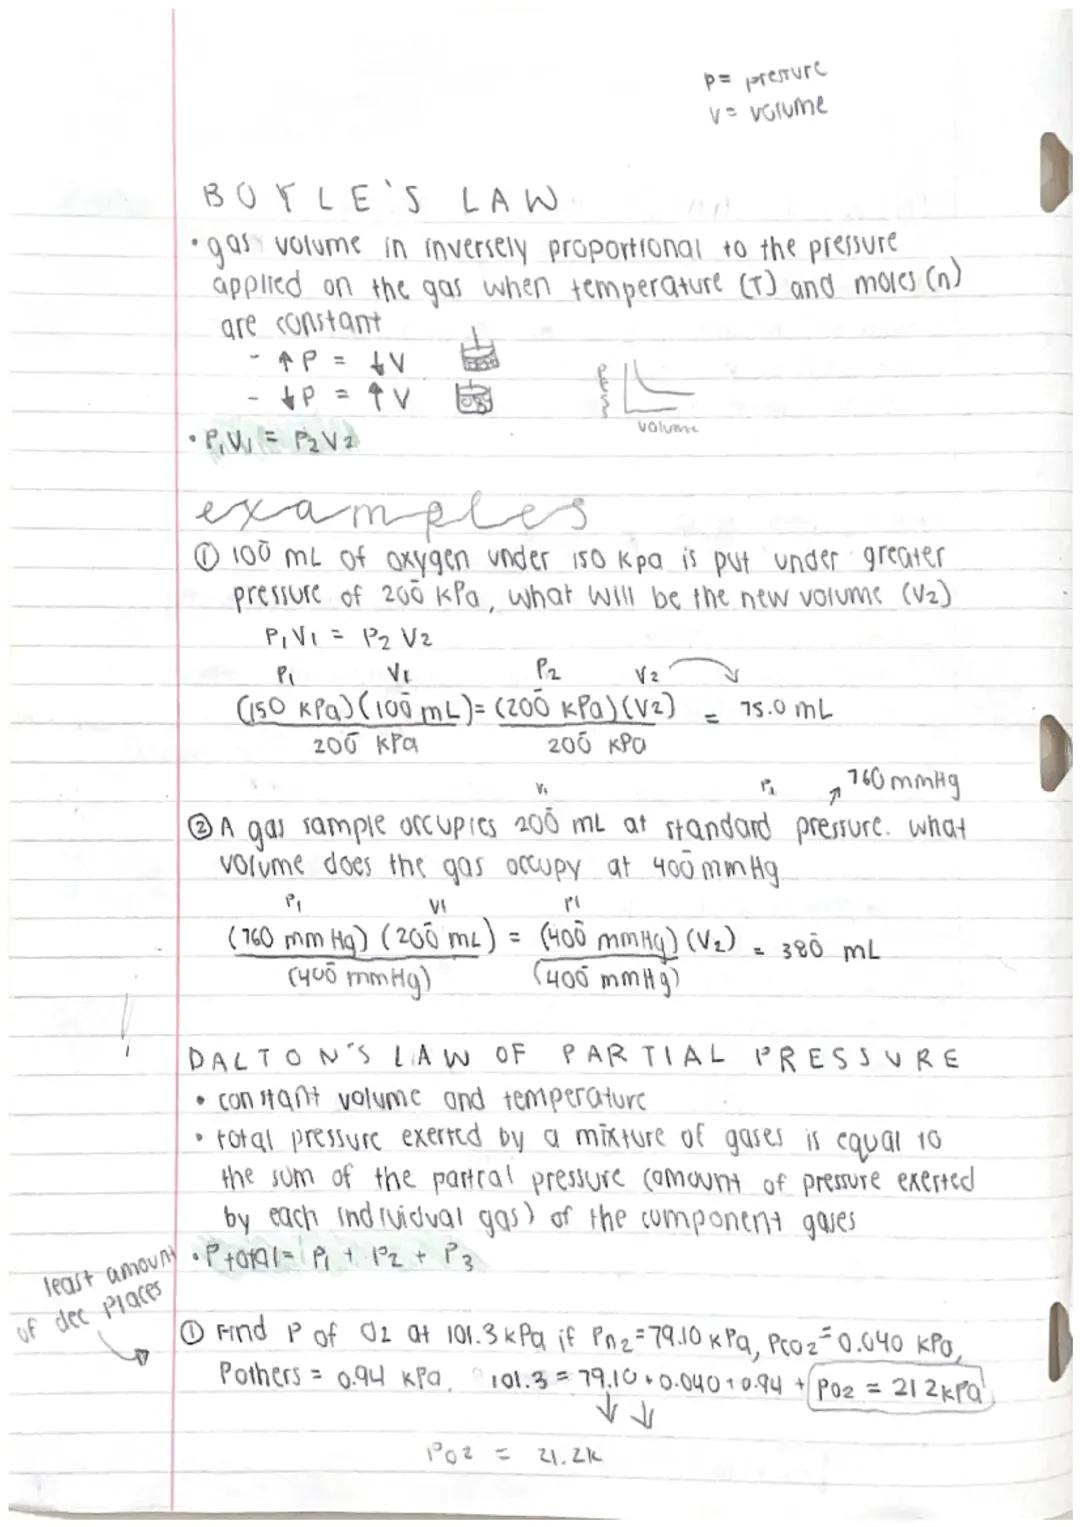 p= pressure
v= volume
BOYLE'S LAW
• gas volume in inversely proportional to the pressure
applied on the gas when temperature (T) and moles (n)
are constant
- ↑P = ↓V
- ↓P = ↑V
volume
• P₁V₁ = P₂V₂
examples
① 100̄ mL of oxygen under 150 kpa is put under greater
pressure of 200̄ kPa, what will be the new volume (V2)
P₁V₁ = P₂ V₂
P₁ V₁ P₂ V₂
(150 kPa)(100̄ mL) = (200̄ kPa)(V2) = 75.0 mL
200̄ kPa 200̄ kPa
V₁ P₂ ↗ 760 mmHg
② A gas sample occupies 200̄ mL at standard pressure. what
volume does the gas occupy at 400̄ mmHg
P₁ V₁ P₁
(760 mmHg) (200̄ mL) = (400̄ mmHg) (V₂) = 380̄ mL
(400̄ mmHg) (400̄ mmHg)
DALTON'S LAW OF PARTIAL PRESSURE
• constant volume and temperature
• total pressure exerted by a mixture of gases is equal to
the sum of the partial pressure (amount of pressure exerted
by each individual gas) of the component gases
• Ptotal = P₁ + P₂ + P₃
least amount
of dec places
① Find P of O2 at 101.3 kPa if Pn₂ = 79.10 kPa, Pco₂ = 0.040 kPa,
Pothers = 0.94 kPa. 101.3 = 79.10 + 0.040 + 0.94 + PO₂ = 21 2kPa
↓ ↓
PO₂ = 21.2k